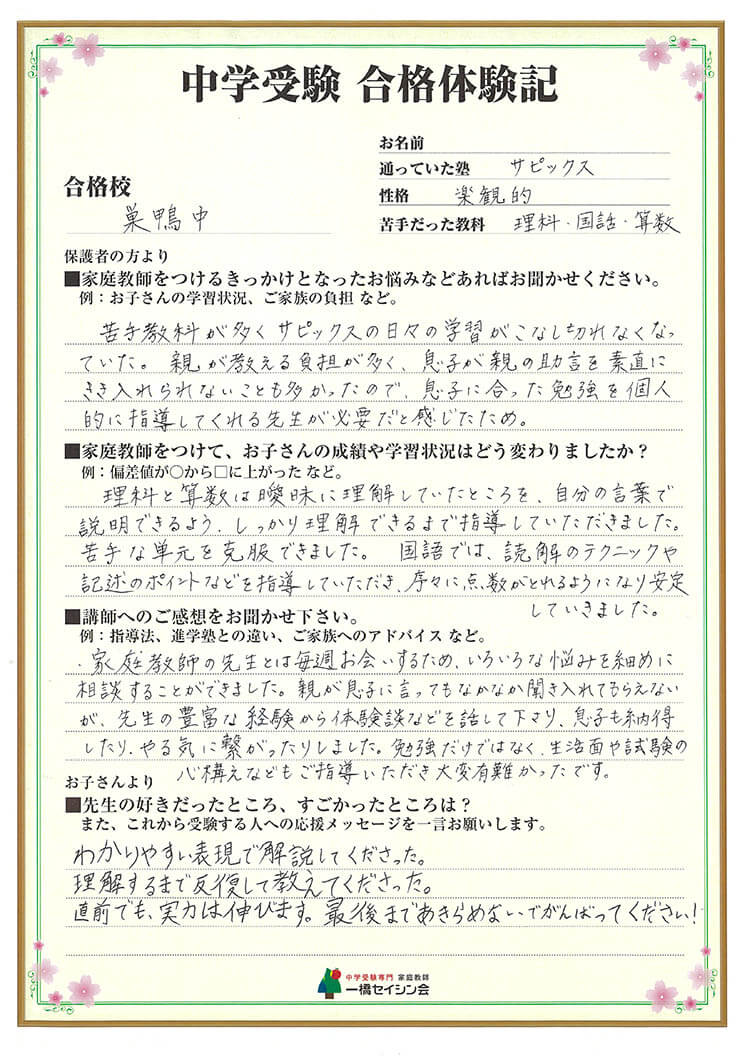 中学受験 合格体験記
お名前
通っていた塾 サピックス
合格校
性格 楽観的
巣鴨中
苦手だった教科 理科・国語・算数
保護者の方より
■家庭教師をつけるきっかけとなったお悩みなどあればお聞かせください。
例:お子さんの学習状況、ご家族の負担 など。
苦手教科が多くサピックスの日々の学習がこなし切れなくなっ
ていた。親が教える負担が多く、息子が親の助言を素直に
きき入れられないことも多かったので、息子に合った勉強を個人
的に指導してくれる先生が必要だと感じたため。
■家庭教師をつけて、お子さんの成績や学習状況はどう変わりましたか?
例:偏差値が○から□に上がった など。
理科と算数は曖昧に理解していたところを、自分の言葉で
説明できるよう、しっかり理解できるまで指導していただきました。
苦手な単元を克服できました。 国語では、読解のテクニックや
記述のポイントなどを指導していただき、序々に点数がとれるようになり安定
していきました。
■講師へのご感想をお聞かせ下さい。
例:指導法、進学塾との違い、ご家族へのアドバイス など。
・家庭教師の先生とは毎週お会いするため、いろいろな悩みを細めに
相談することができました。親が息子に言ってもなかなか聞き入れてもらえない
が、先生の豊富な経験から体験談などを話して下さり、息子も納得
したり、やる気に繋がったりしました。勉強だけではなく、生活面や試験の
心構えなどもご指導いただき大変有難かったです。
お子さんより
■先生の好きだったところ、すごかったところは?
また、これから受験する人への応援メッセージを一言お願いします。
わかりやすい表現で解説してくださった。
理解するまで反復して教えてくださった。
直前でも、実力は伸びます。最後まであきらめないでがんばってください!
中学受験専門 家庭教師
一橋セイシン会